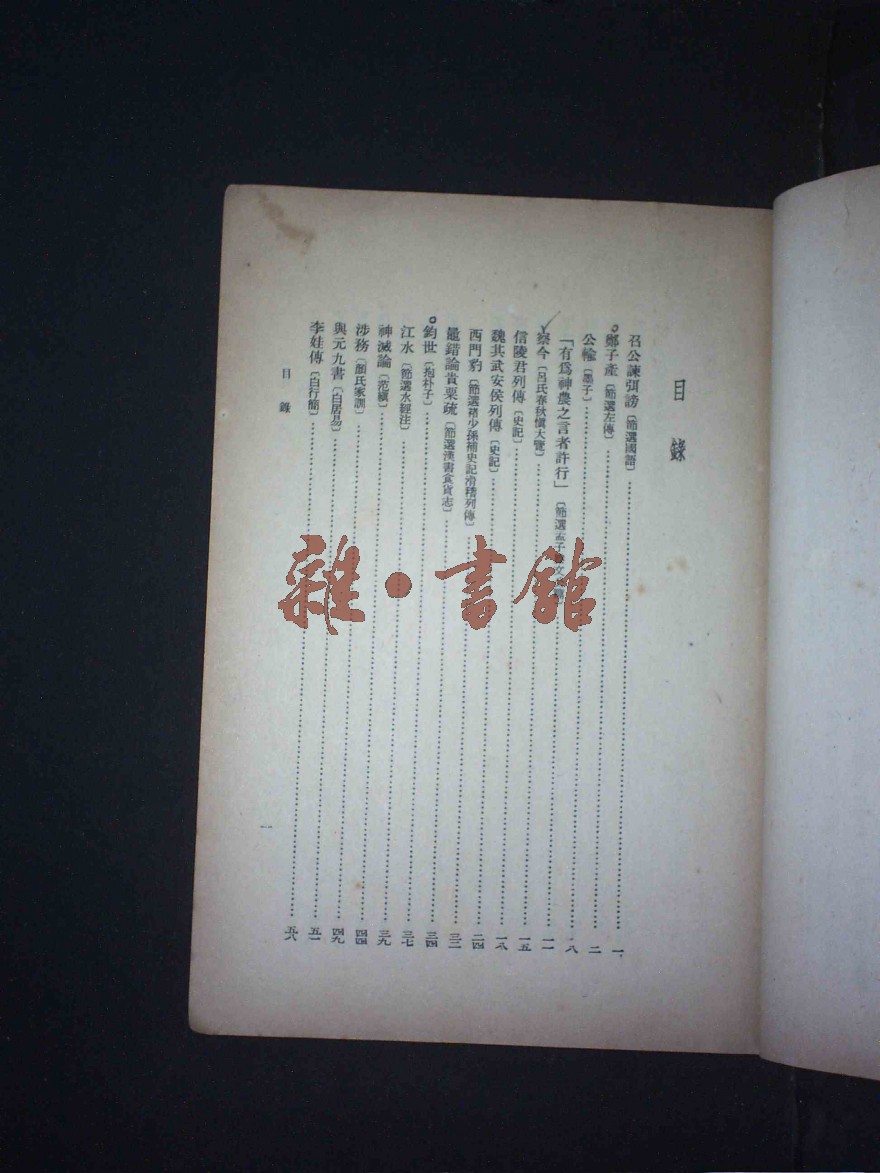 目錄
召公諫弭謗〔節選國語〕……一
鄭子產〔節選左傳〕……二
公輸〔墨子〕……八
「有爲神農之言者許行」〔節選孟子……一一
察今〔呂氏春秋愼大覽〕……一五
信陵君列傳〔史記〕……一八
魏其武安侯列傳〔史記〕……二四
西門豹〔節選褚少孫補史記滑稽列傳〕……三二
鼂錯論貴粟疏〔節選漢書食貨志〕……三四
鈞世〔抱朴子〕……三七
江水〔節選水經注〕……三九
神滅論〔范縝〕……四四
涉務〔顏氏家訓〕……四九
與元九書〔白居易〕……五一
李娃傳〔白行簡〕……五六
目錄
一
雜·書館